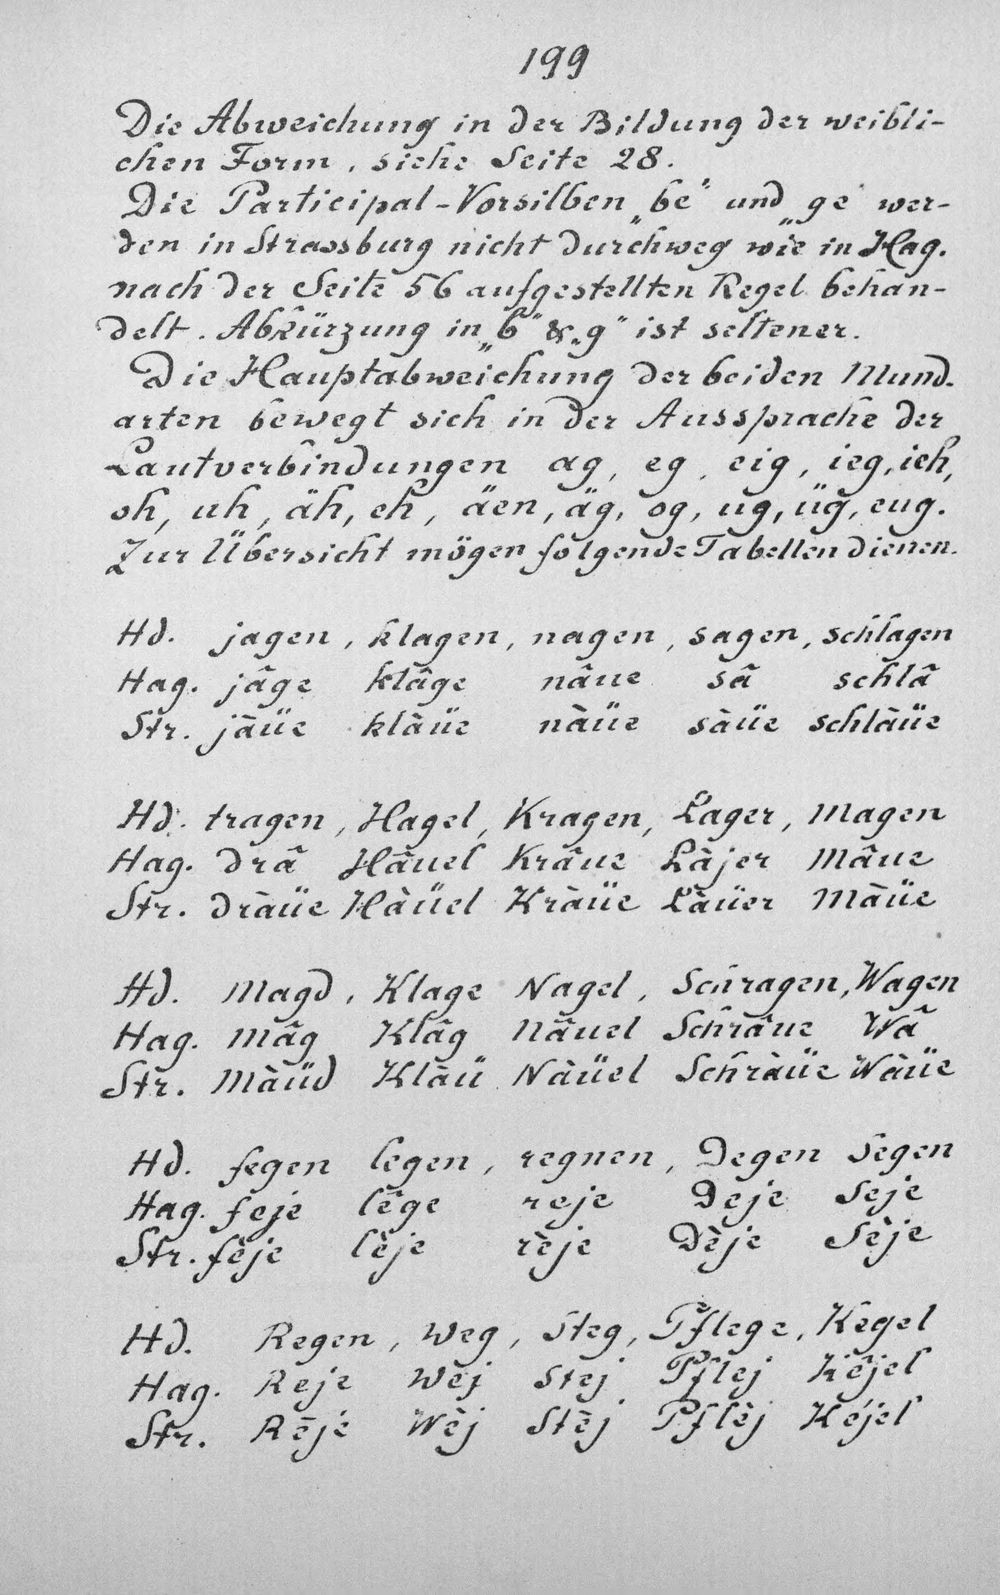 199
Die Abweichung in der Bildung der weibli-
chen Form, siehe Seite 28.
Die Participal-Vorsilben „be" und „ge" wer-
den in Strassburg nicht durchweg wie in Hag.
nach der Seite 56 aufgestellten Regel behan-
delt. Abkürzung in „b" & „g" ist seltener.
Die Hauptabweichung der beiden Mund-
arten bewegt sich in der Aussprache der
Lautverbindungen ag, eg, eig, ieg, ich,
oh, uh, äh, eh, äen, äg, og, ug, üg, eug.
Zur Übersicht mögen folgende Tabellen dienen.
Hd. jagen, klagen, nagen, sagen, schlagen
Hag. jâge klâge nâue sâ schlâ
Str. jàüe klàüe nàüe sàüe schlàüe
Hd. tragen, Hagel, Kragen, Lager, Magen
Hag. drâ Hâuel Krâue Làjer Mâue
Str. dràüe Hàüel Kràüe Làüer Màüe
Hd. Magd, Klage Nagel, Schragen, Wagen
Hag. Mâg Klâg Nâuel Schrâue Wâ
Str. Màüd Klàü Nàüel Schràüe Wàüe
Hd. fegen legen, regnen, Degen Segen
Hag. feje lêge reje Deje Seje
Str. fèje lèje rèje Dèje Sèje
Hd. Regen, Weg, Steg, Pflege, Kegel
Hag. Reje Wêj Stej Pflej Kêjel
Str. Rèje Wèj Stèj Pflèj Kèjel